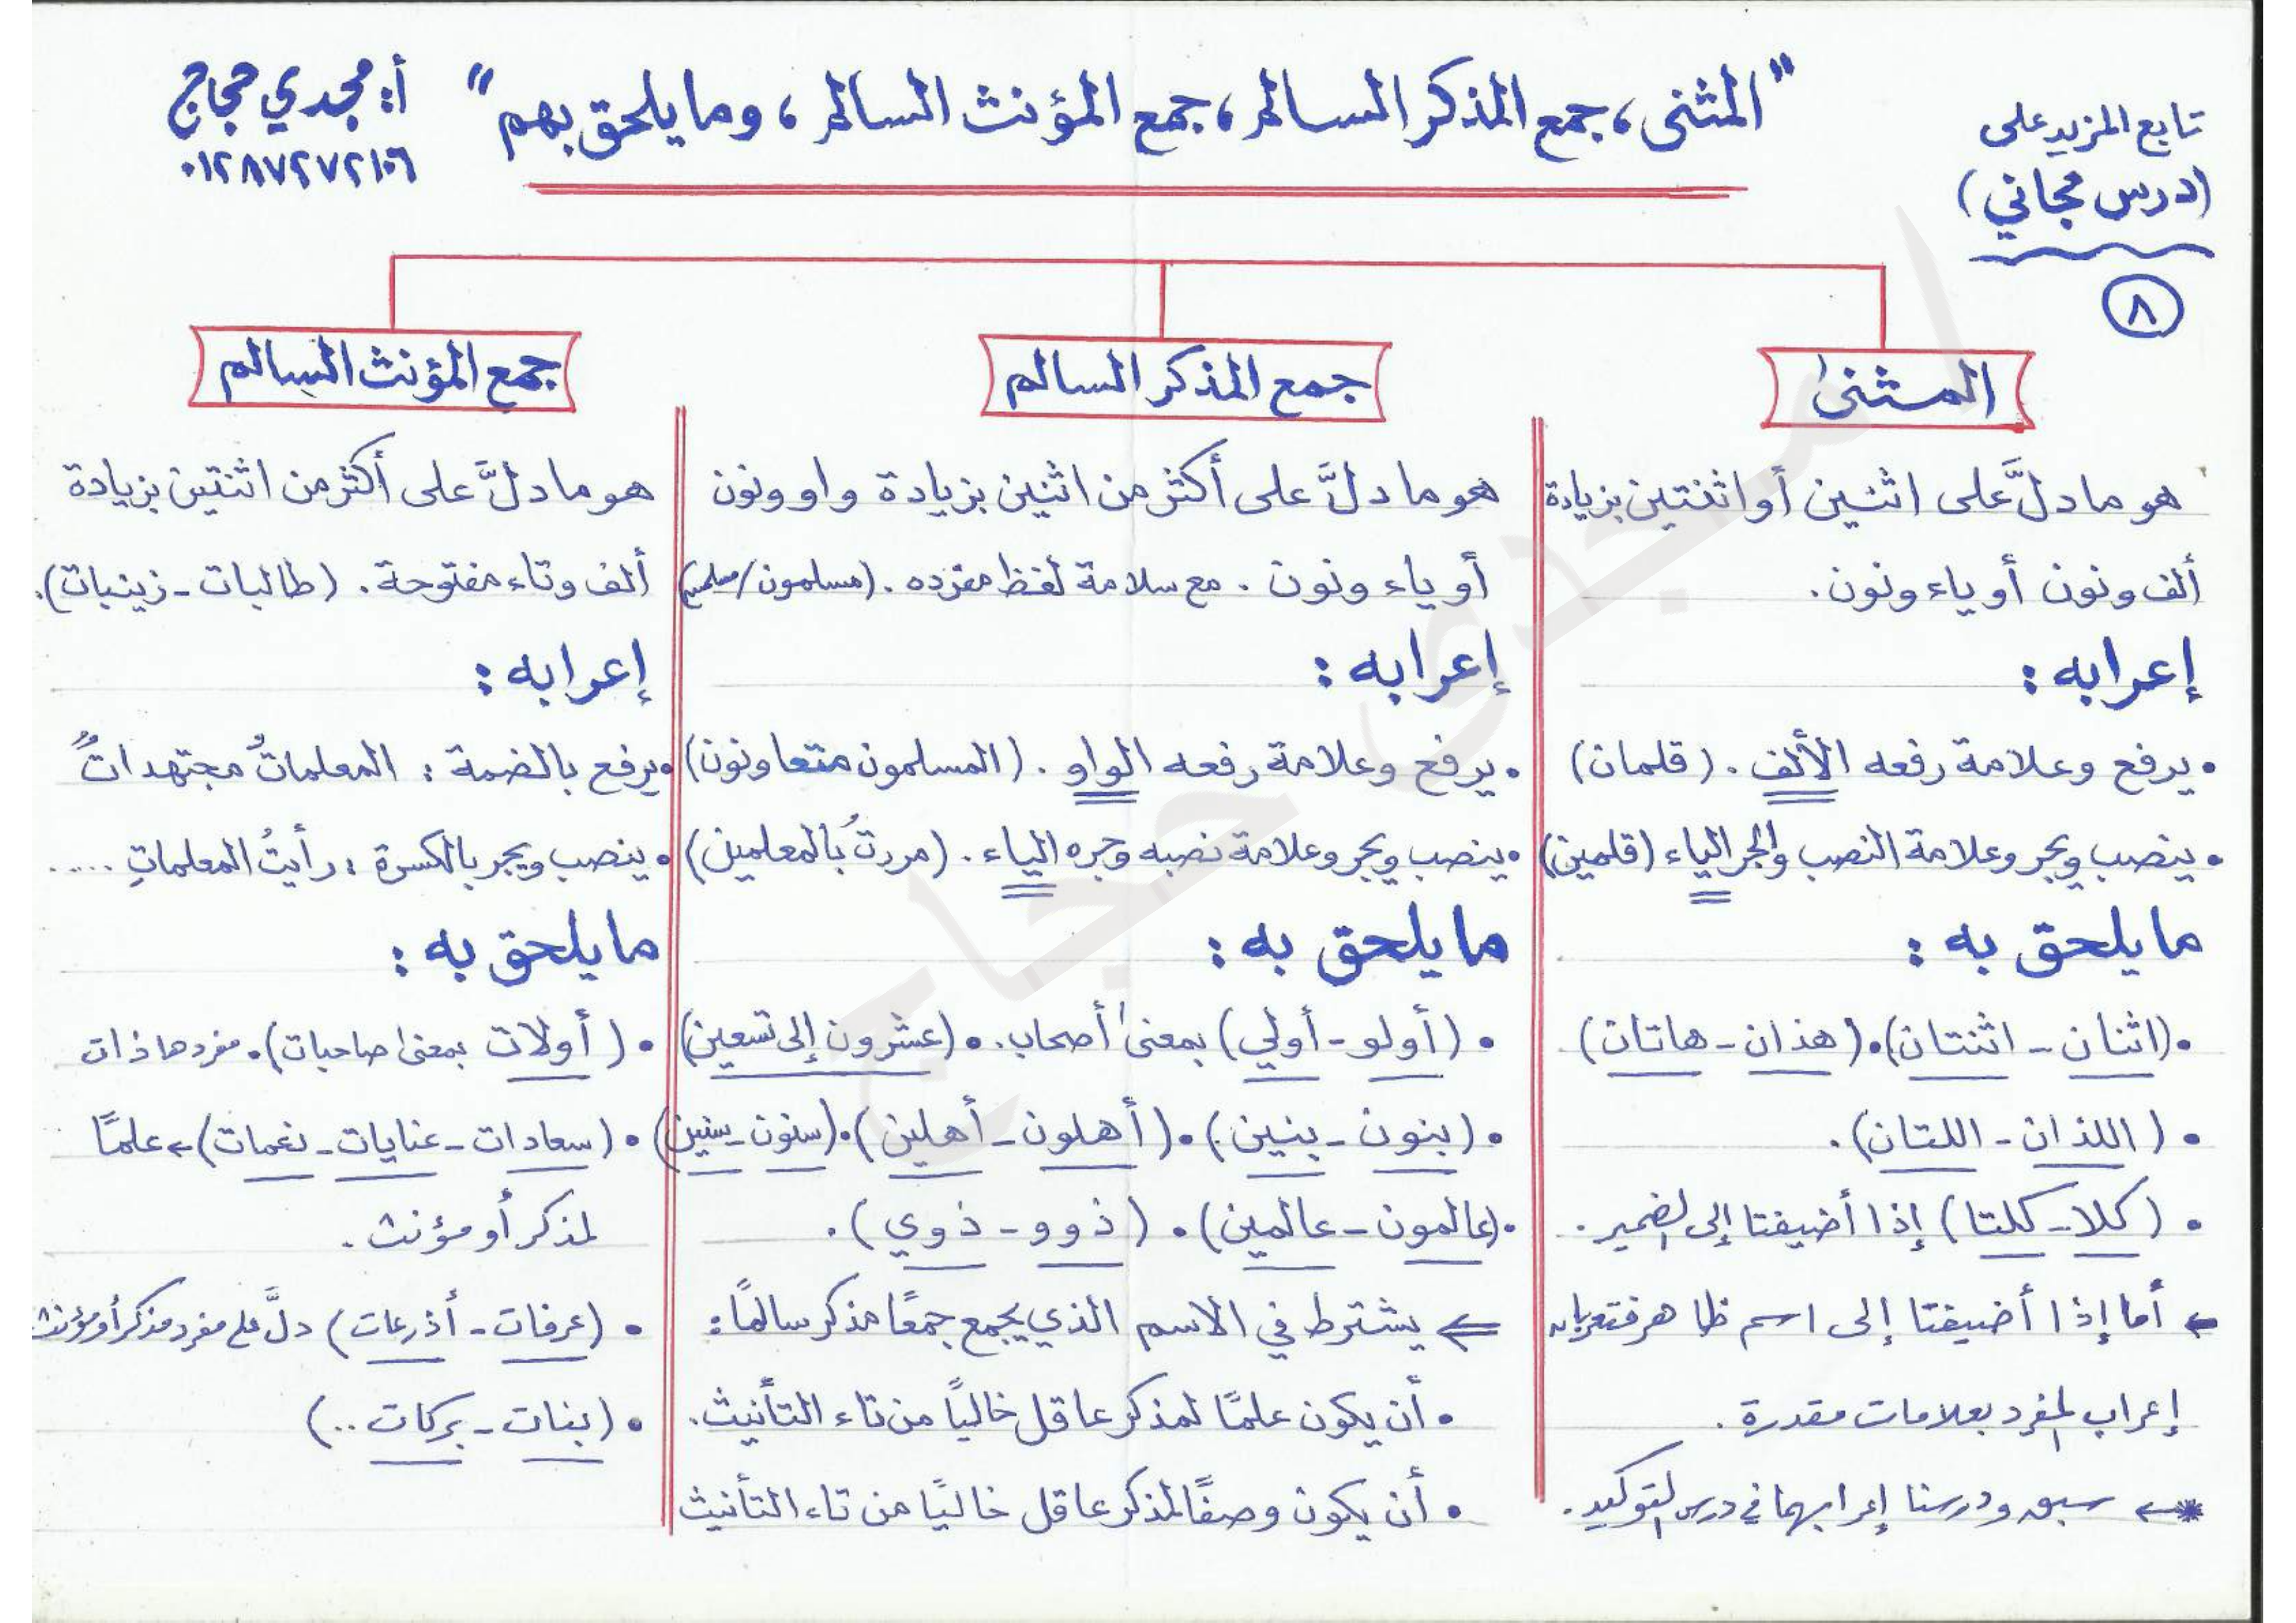 تابع المزيد على
(درس مجاني)
٨
"المثنى، جمع المذكر السالم، جمع المؤنث السالم، وما يلحق بهم"
أ: مجدي حجاج
٠١٢٨٧٢٧٢١٠٦
المثنى
هو ما دلَّ على اثنين أو اثنتين بزيادة
ألف ونون أو ياء ونون.
إعرابه:
• يرفع وعلامة رفعه الألف. (قلمان)
• ينصب ويجر وعلامة النصب والجر الياء (قلمين)
ما يلحق به:
• (اثنان - اثنتان) • (هذان - هاتان)
• (اللذان - اللتان).
• (كلا - كلتا) إذا أضيفتا إلى لضمير.
← أما إذا أضيفتا إلى اسم ظاهر فتعربان
إعراب لمفرد بعلامات مقدرة.
* ← سبق ودرسنا إعرابهما في درس لتوكيد.
جمع المذكر السالم
هو ما دلَّ على أكثر من اثنين بزيادة واو ونون
أو ياء ونون. مع سلامة لفظ مفرده. (مسلمون/مسلمين)
إعرابه:
• يرفع وعلامة رفعه الواو. (المسلمون متعاونون)
• ينصب ويجر وعلامة نصبه وجره الياء. (مررتُ بالمعلمين)
ما يلحق به:
• (أولو - أولي) بمعنى أصحاب. • (عشرون إلى تسعين)
• (بنون - بنين) • (أهلون - أهلين) • (سنون - سنين)
• (عالمون - عالمين) • (ذوو - ذوي).
⇐ يشترط في الاسم الذي يجمع جمعًا مذكر سالمًا:
• أن يكون علمًا لمذكر عاقل خاليًا من تاء التأنيث.
• أن يكون وصفًا لمذكر عاقل خاليًا من تاء التأنيث
جمع المؤنث السالم
هو ما دلَّ على أكثر من اثنتين بزيادة
ألف وتاء مفتوحة. (طالبات - زينبات).
إعرابه:
• يرفع بالضمة: المعلماتُ مجتهداتٌ
• ينصب ويجر بالكسرة: رأيتُ المعلماتِ .....
ما يلحق به:
• (أولات بمعنى صاحبات). مفردها ذات
• (سعادات - عنايات - نعمات) ← علمًا
لمذكر أو مؤنث.
• (عرفات - أذرعات) دلَّ على مفرد مذكر أو مؤنث
• (بنات - بركات ..)
امجدى حجاج